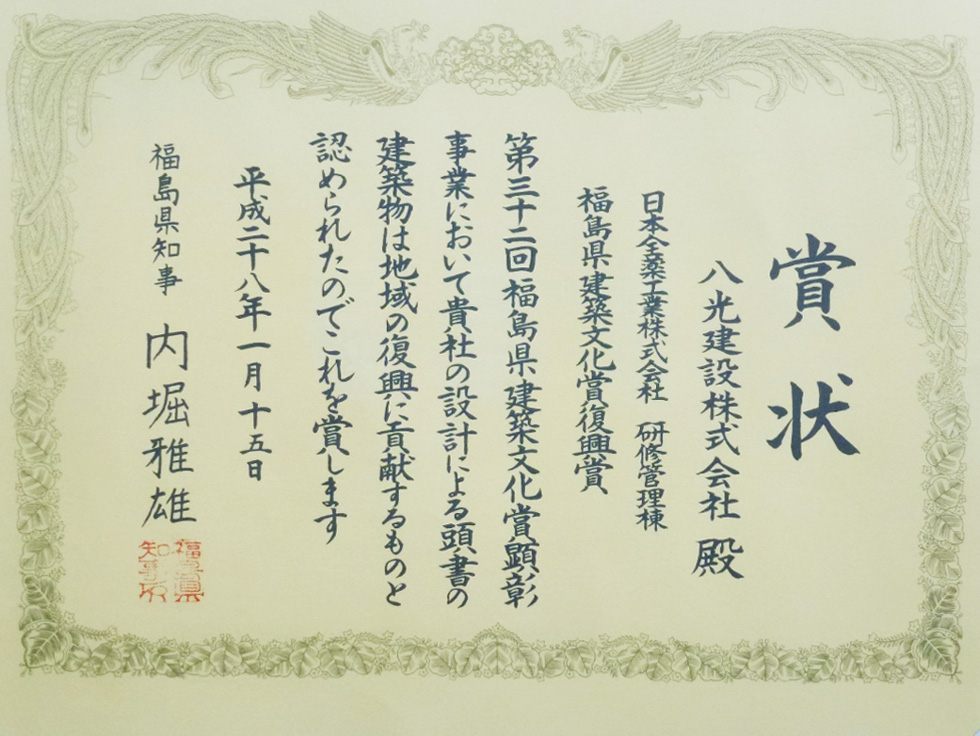 賞状
八光建設株式会社 殿
日本全薬工業株式会社 研修管理棟
福島県建築文化賞復興賞
第三十二回福島県建築文化賞顕彰
事業において貴社の設計による頭書の
建築物は地域の復興に貢献するものと
認められたのでこれを賞します
平成二十八年一月十五日
福島県知事 内堀雅雄
福島県
知事印